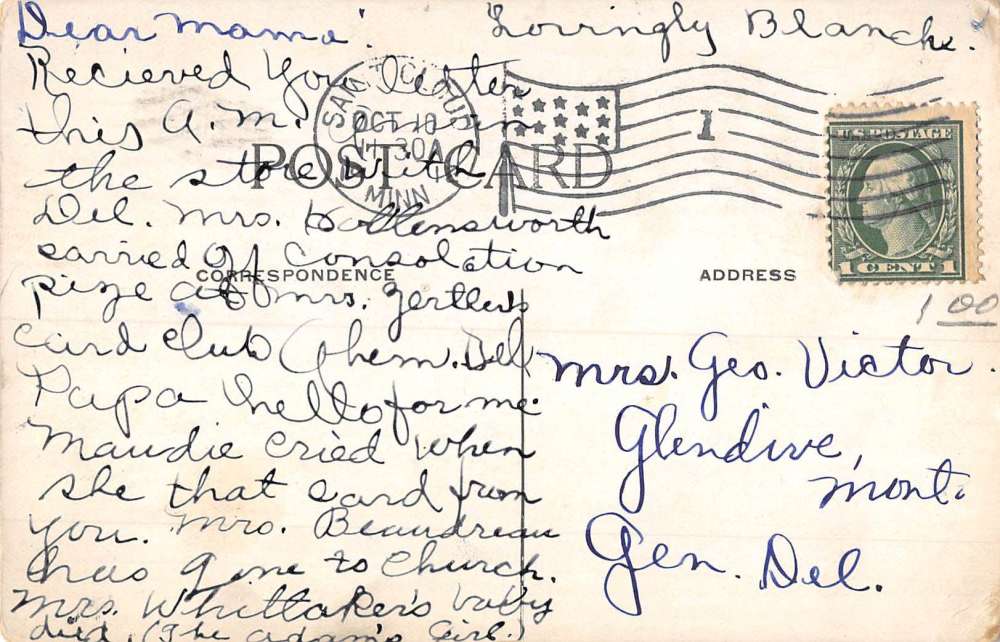 Dear Mama: Lovingly Blanche.
Recieved You Letter
this A.M. Am in
the store with
Del. Mrs. Hollensworth
carried off Consolation
prize at Mrs. Zertler's
Card Club (Ahem. Tell
Papa hello for me.
Maudie cried when
she that card from
you. Mrs. Beaudreau
has gone to Church.
Mrs. Whittaker's baby
died. (The Adam's Girl.)
OCT 10
11 30 A
MINN
1
POST CARD
CORRESPONDENCE
ADDRESS
U.S. POSTAGE
1 CENT 1
1 00
Mrs. Geo. Victor.
Glendive,
Mont.
Gen. Del.